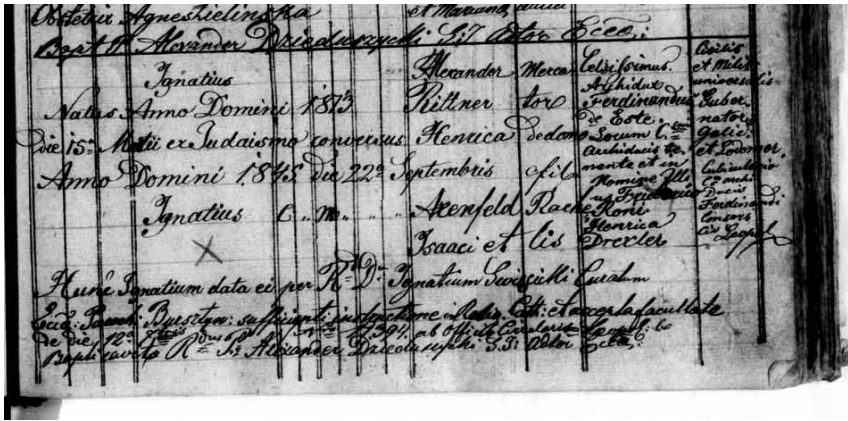 Obstetrix Agnes Zielinska et Mariana
Bapt. P. Alexander Dzieduszycki S:J Actor Eccl:
Ignatius
Natus Anno Domini 1813
die 15a Martii ex Judaismo conversus
Anno Domini 1845 die 22a Septembris
Ignatius C " m " " "
Alexander Merca
Rittner tor
Henrica de dano
filia
Axenfeld Rache
Isaaci et lis
Celsissimus
Archidux
Ferdinandus
de Este
Locum
Archiducis te
nente et in
Nomine Illi
us Friderico
Roni
Henrica
Drexler
Civilis
et Milit
universalis
Guber
nator
Galic:
et Lodomer.
Cubiculario
Archi
Ducis
Ferdinandi
Consors
civ Leopol
Hunc Ignatium data ei per R. D. Ignatium Curatum
Eccl: sufficienti instructione in Relig. Cath: et accepta facultate
de die 12a 394 ab Officio Circulari Leopol: bo
Baptisavit Rdus P. Alexander Dzieduszycki S.J: Actor Eccl: